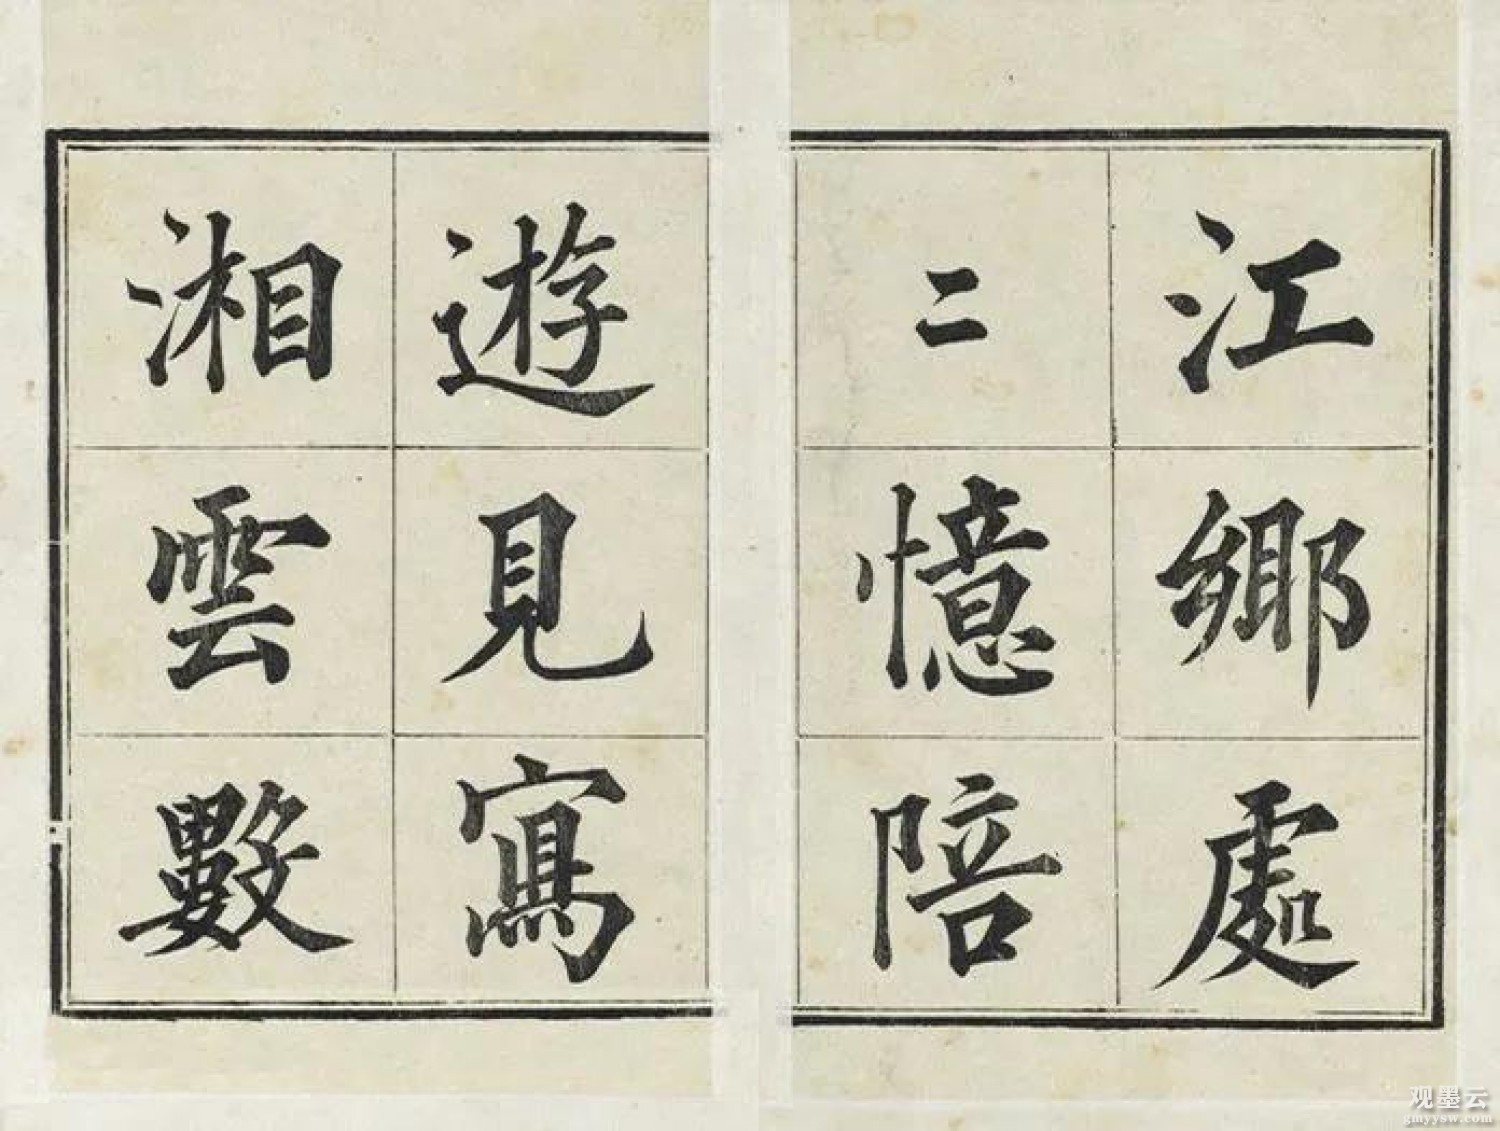 江鄉處
二憶陪
遊見寫
湘雲數
观墨云
gmyysw.com